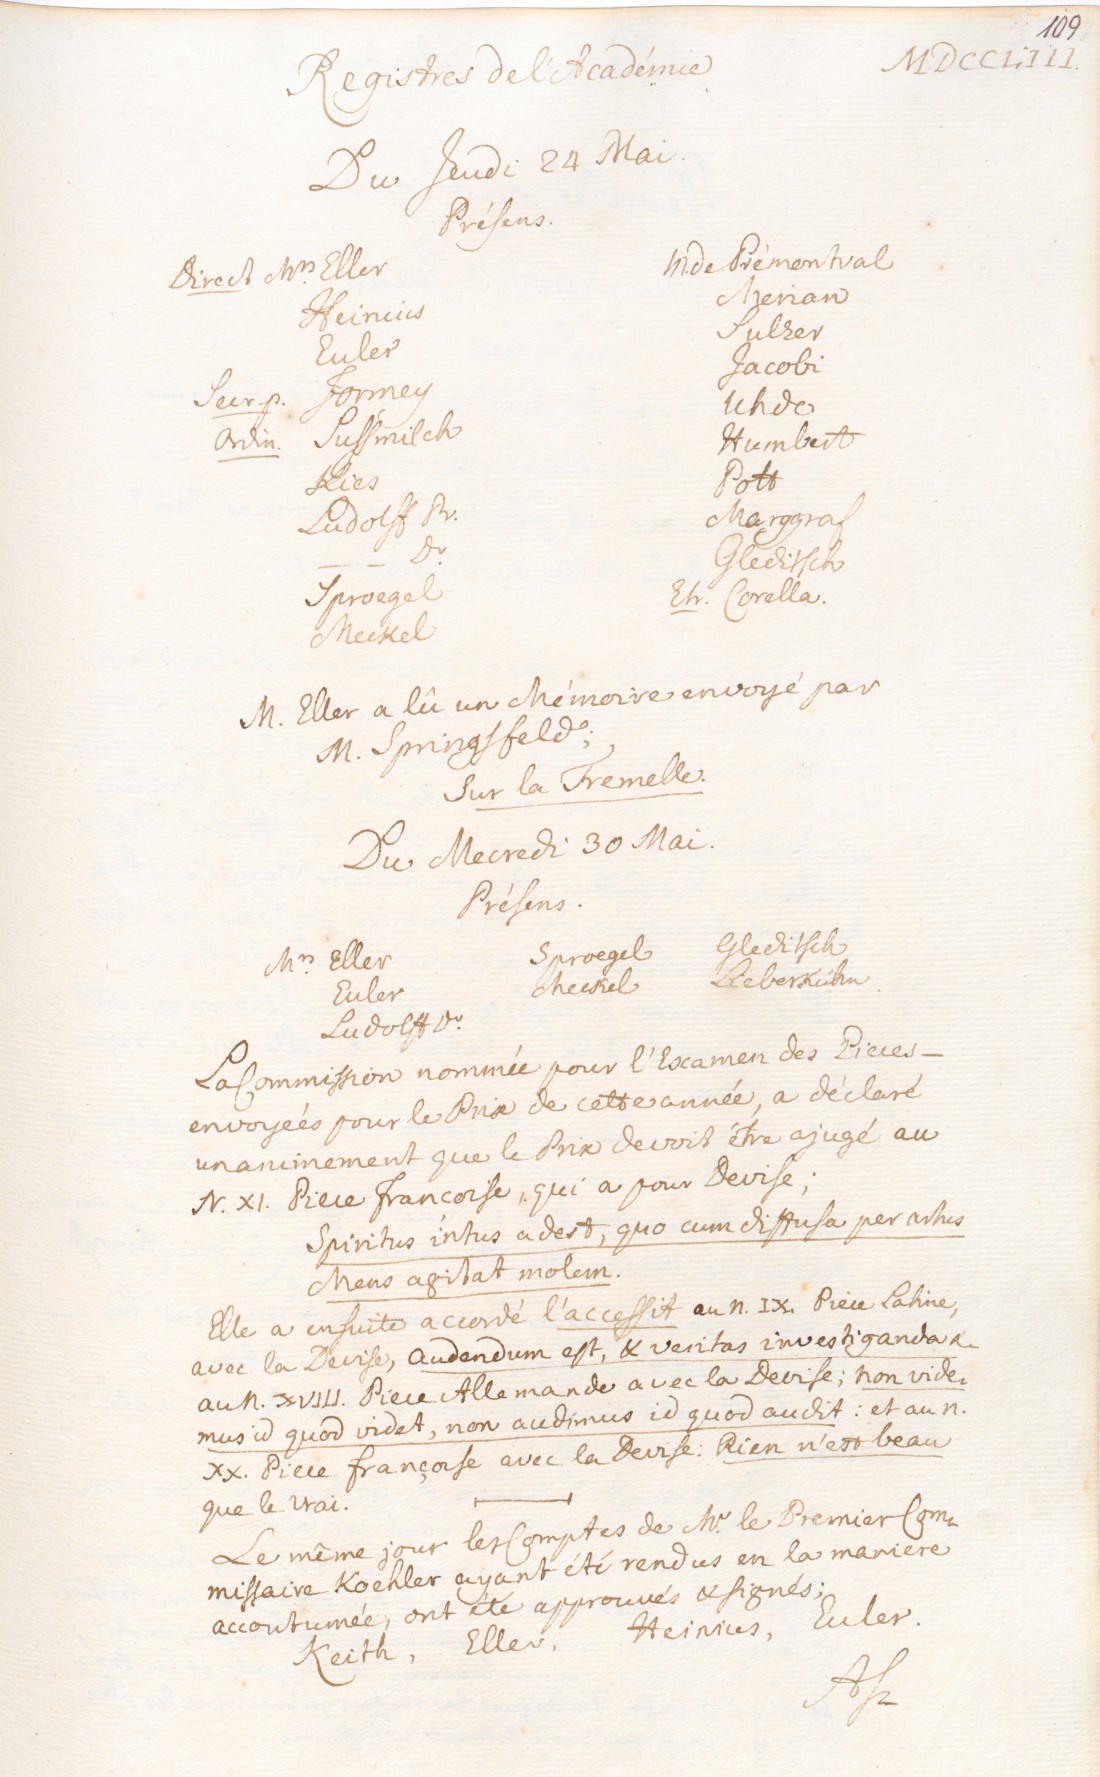 109
Registres de l'Académie
MDCCLIII.
Du Jeudi 24 Mai.
Présens.
Direct Mrs Eller
Heinius
Euler
Secr. p. Formey
Ordin. Sussmilch
Kies
Ludolff Pr.
— — Dr
Sproegel
Meckel
M. de Prémontval
Merian
Sulzer
Jacobi
Uhde
Humbert
Pott
Marggraf
Gleditsch
Etr. Corella.
M. Eller a lû un Mémoire envoyé par
M. Springsfeld;
Sur la Tremelle.
Du Mecredi 30 Mai.
Présens.
Mrs Eller
Euler
Ludolff Dr
Sproegel
Meckel
Gleditsch
Lieberkühn
La Commission nommée pour l'Examen des Pieces
envoyeés pour le Prix de cette année, a déclaré
unanimement que le Prix devoit étre ajugé au
N. XI. Piece françoise, qui a pour Devise;
Spiritus intus adest, quo cum diffusa per artus
Mens agitat molem.
Elle a ensuite accordé l'accessit au n. IX. Piece Latine,
avec la Devise, audendum est, & veritas investiganda &.
au N. XVIII. Piece Allemande avec la Devise; non vide-
mus id quod videt, non audimus id quod audit: et au n.
XX. Piece françoise avec la Devise: Rien n'est beau
que le vrai.
Le même jour les Comptes de Mr. le Premier Com-
missaire Koehler ayant été rendus en la maniere
accoutumée, ont été approuvés & signés;
Keith, Eller, Heinius, Euler.